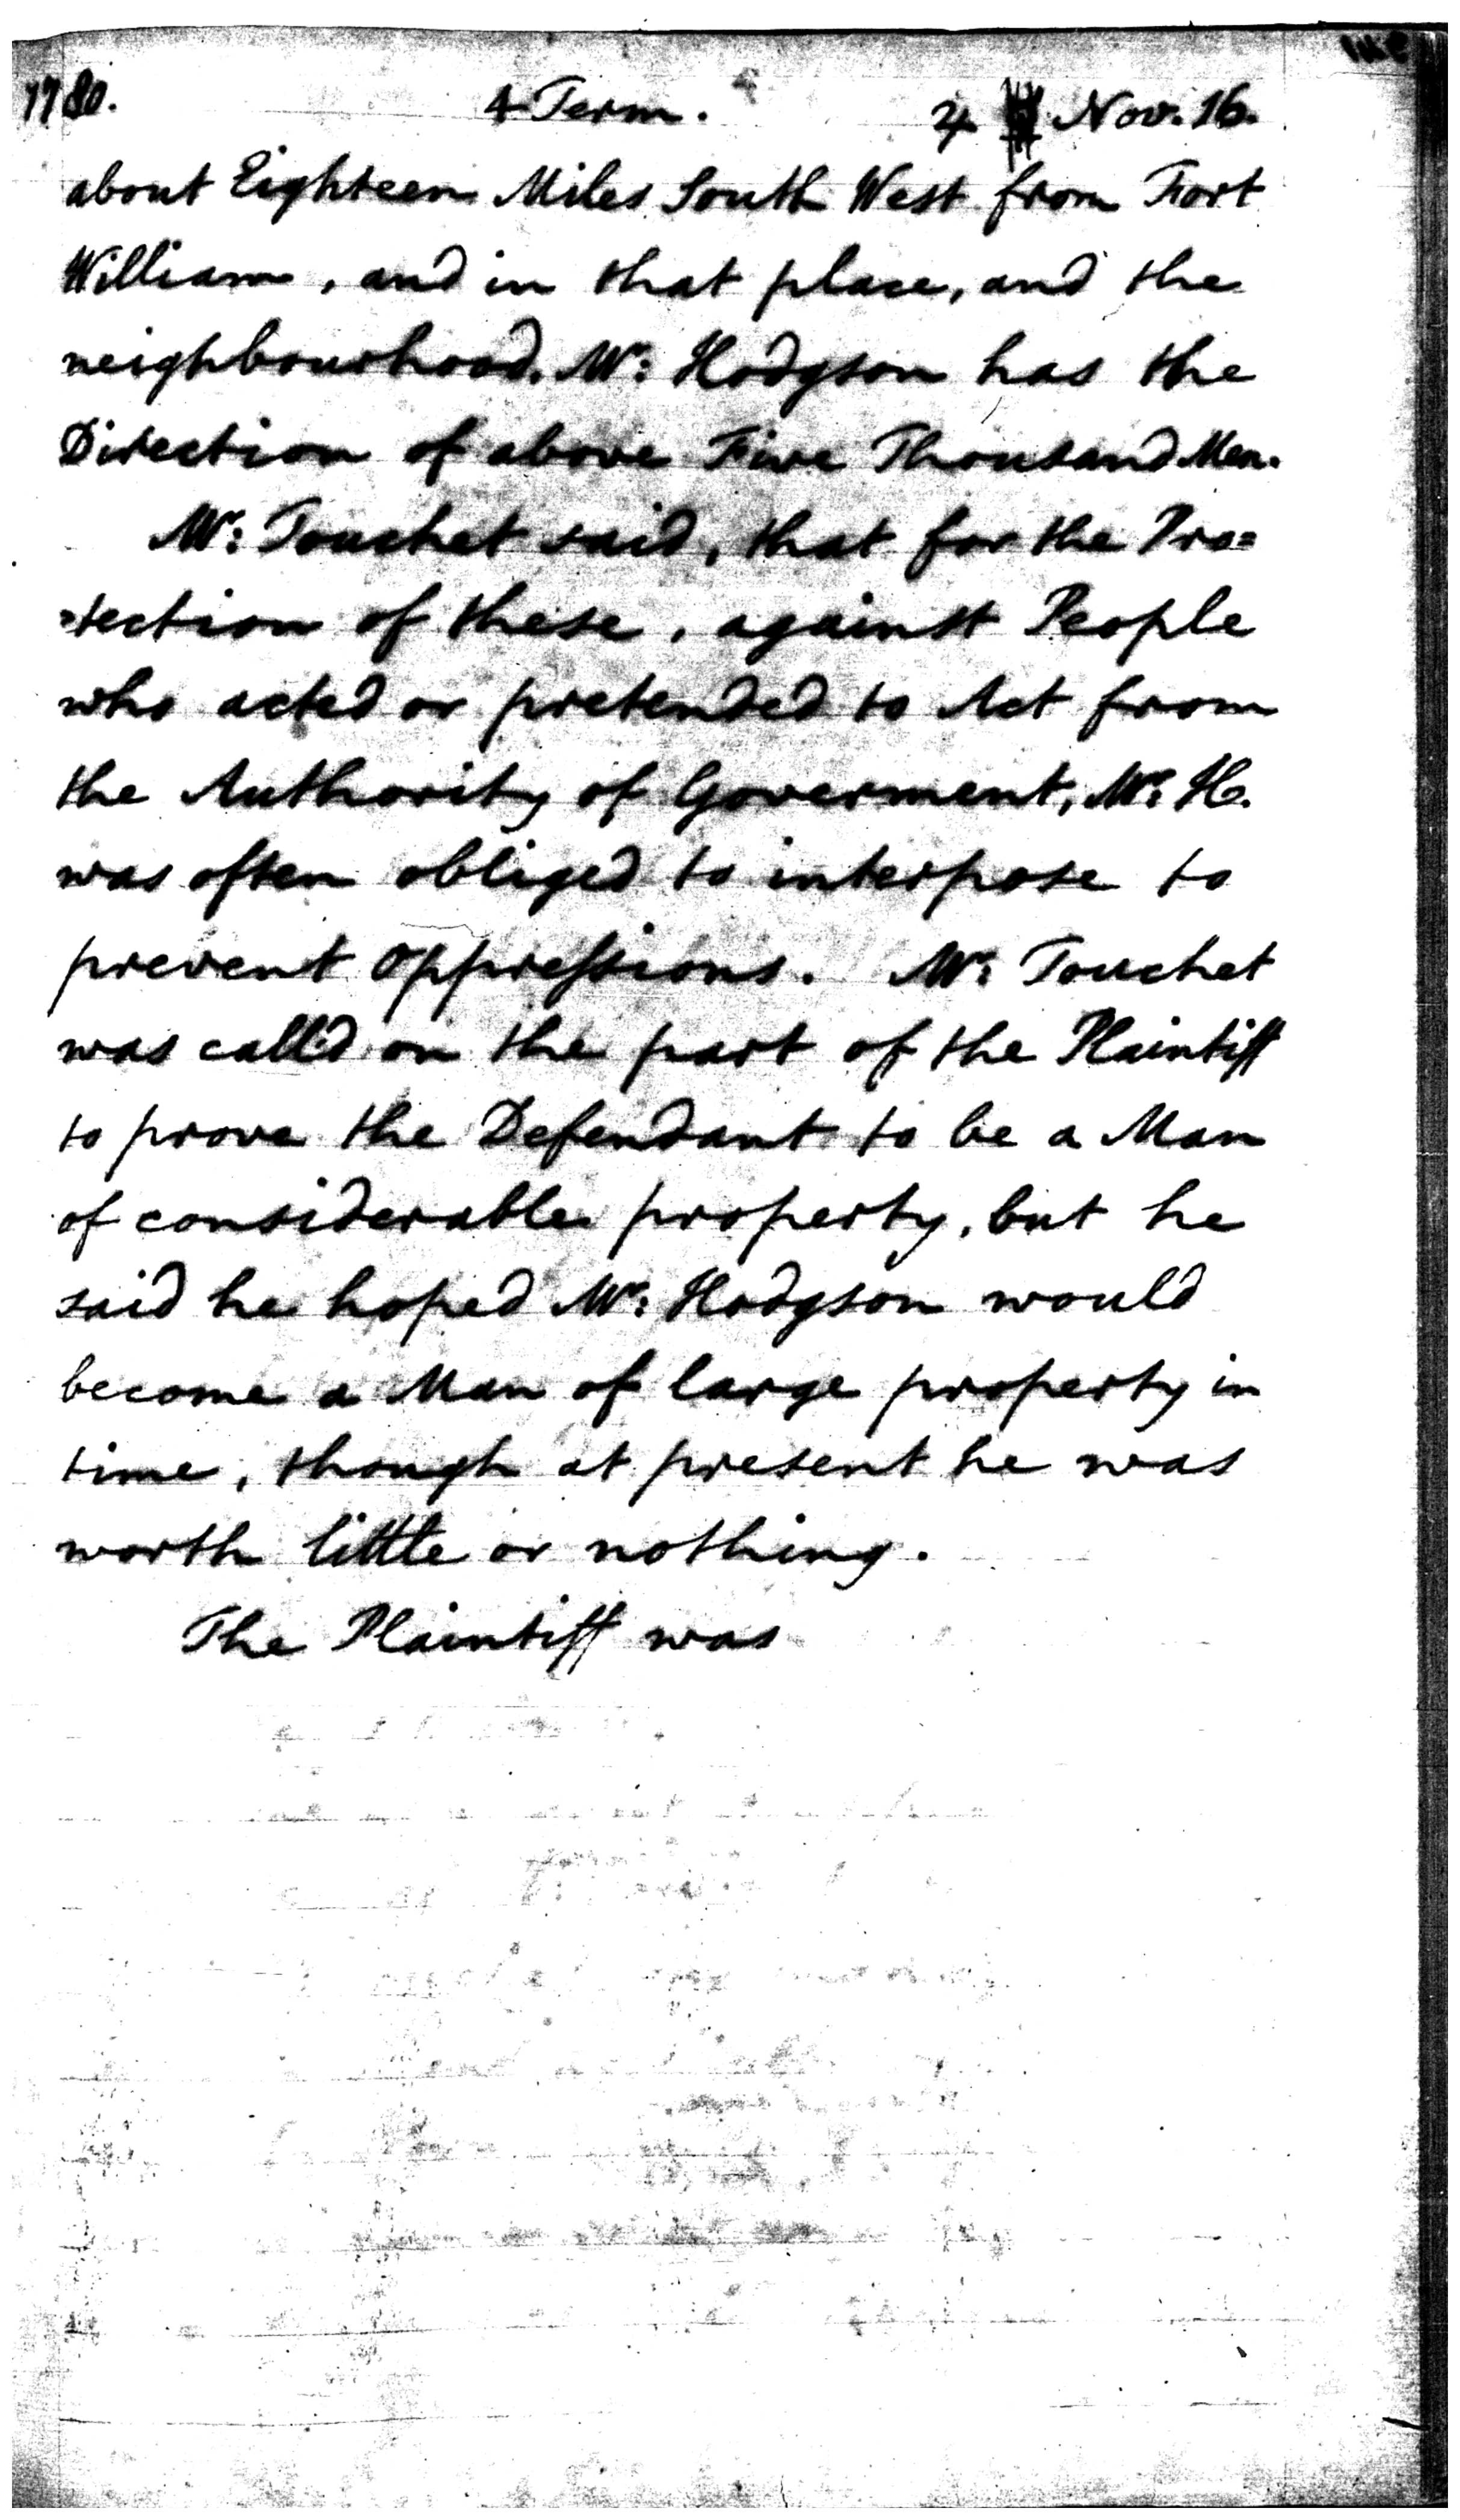 1780. 4 Term. ♃ Nov. 16.
about Eighteen Miles South West from Fort
William, and in that place, and the
neighbourhood, Mr: Hodgson has the
Direction of above Five Thousand Men.
Mr: Touchet said, that for the Pro=
=tection of these, against People
who acted or pretended to Act from
the Authority of Goverment, Mr: H.
was often obliged to interpose to
prevent Oppressions. Mr: Touchet
was call'd on the part of the Plaintiff
to prove the Defendant to be a Man
of considerable property, but he
said he hoped Mr: Hodgson would
become a Man of large property in
time, though at present he was
worth little or nothing.
The Plaintiff was